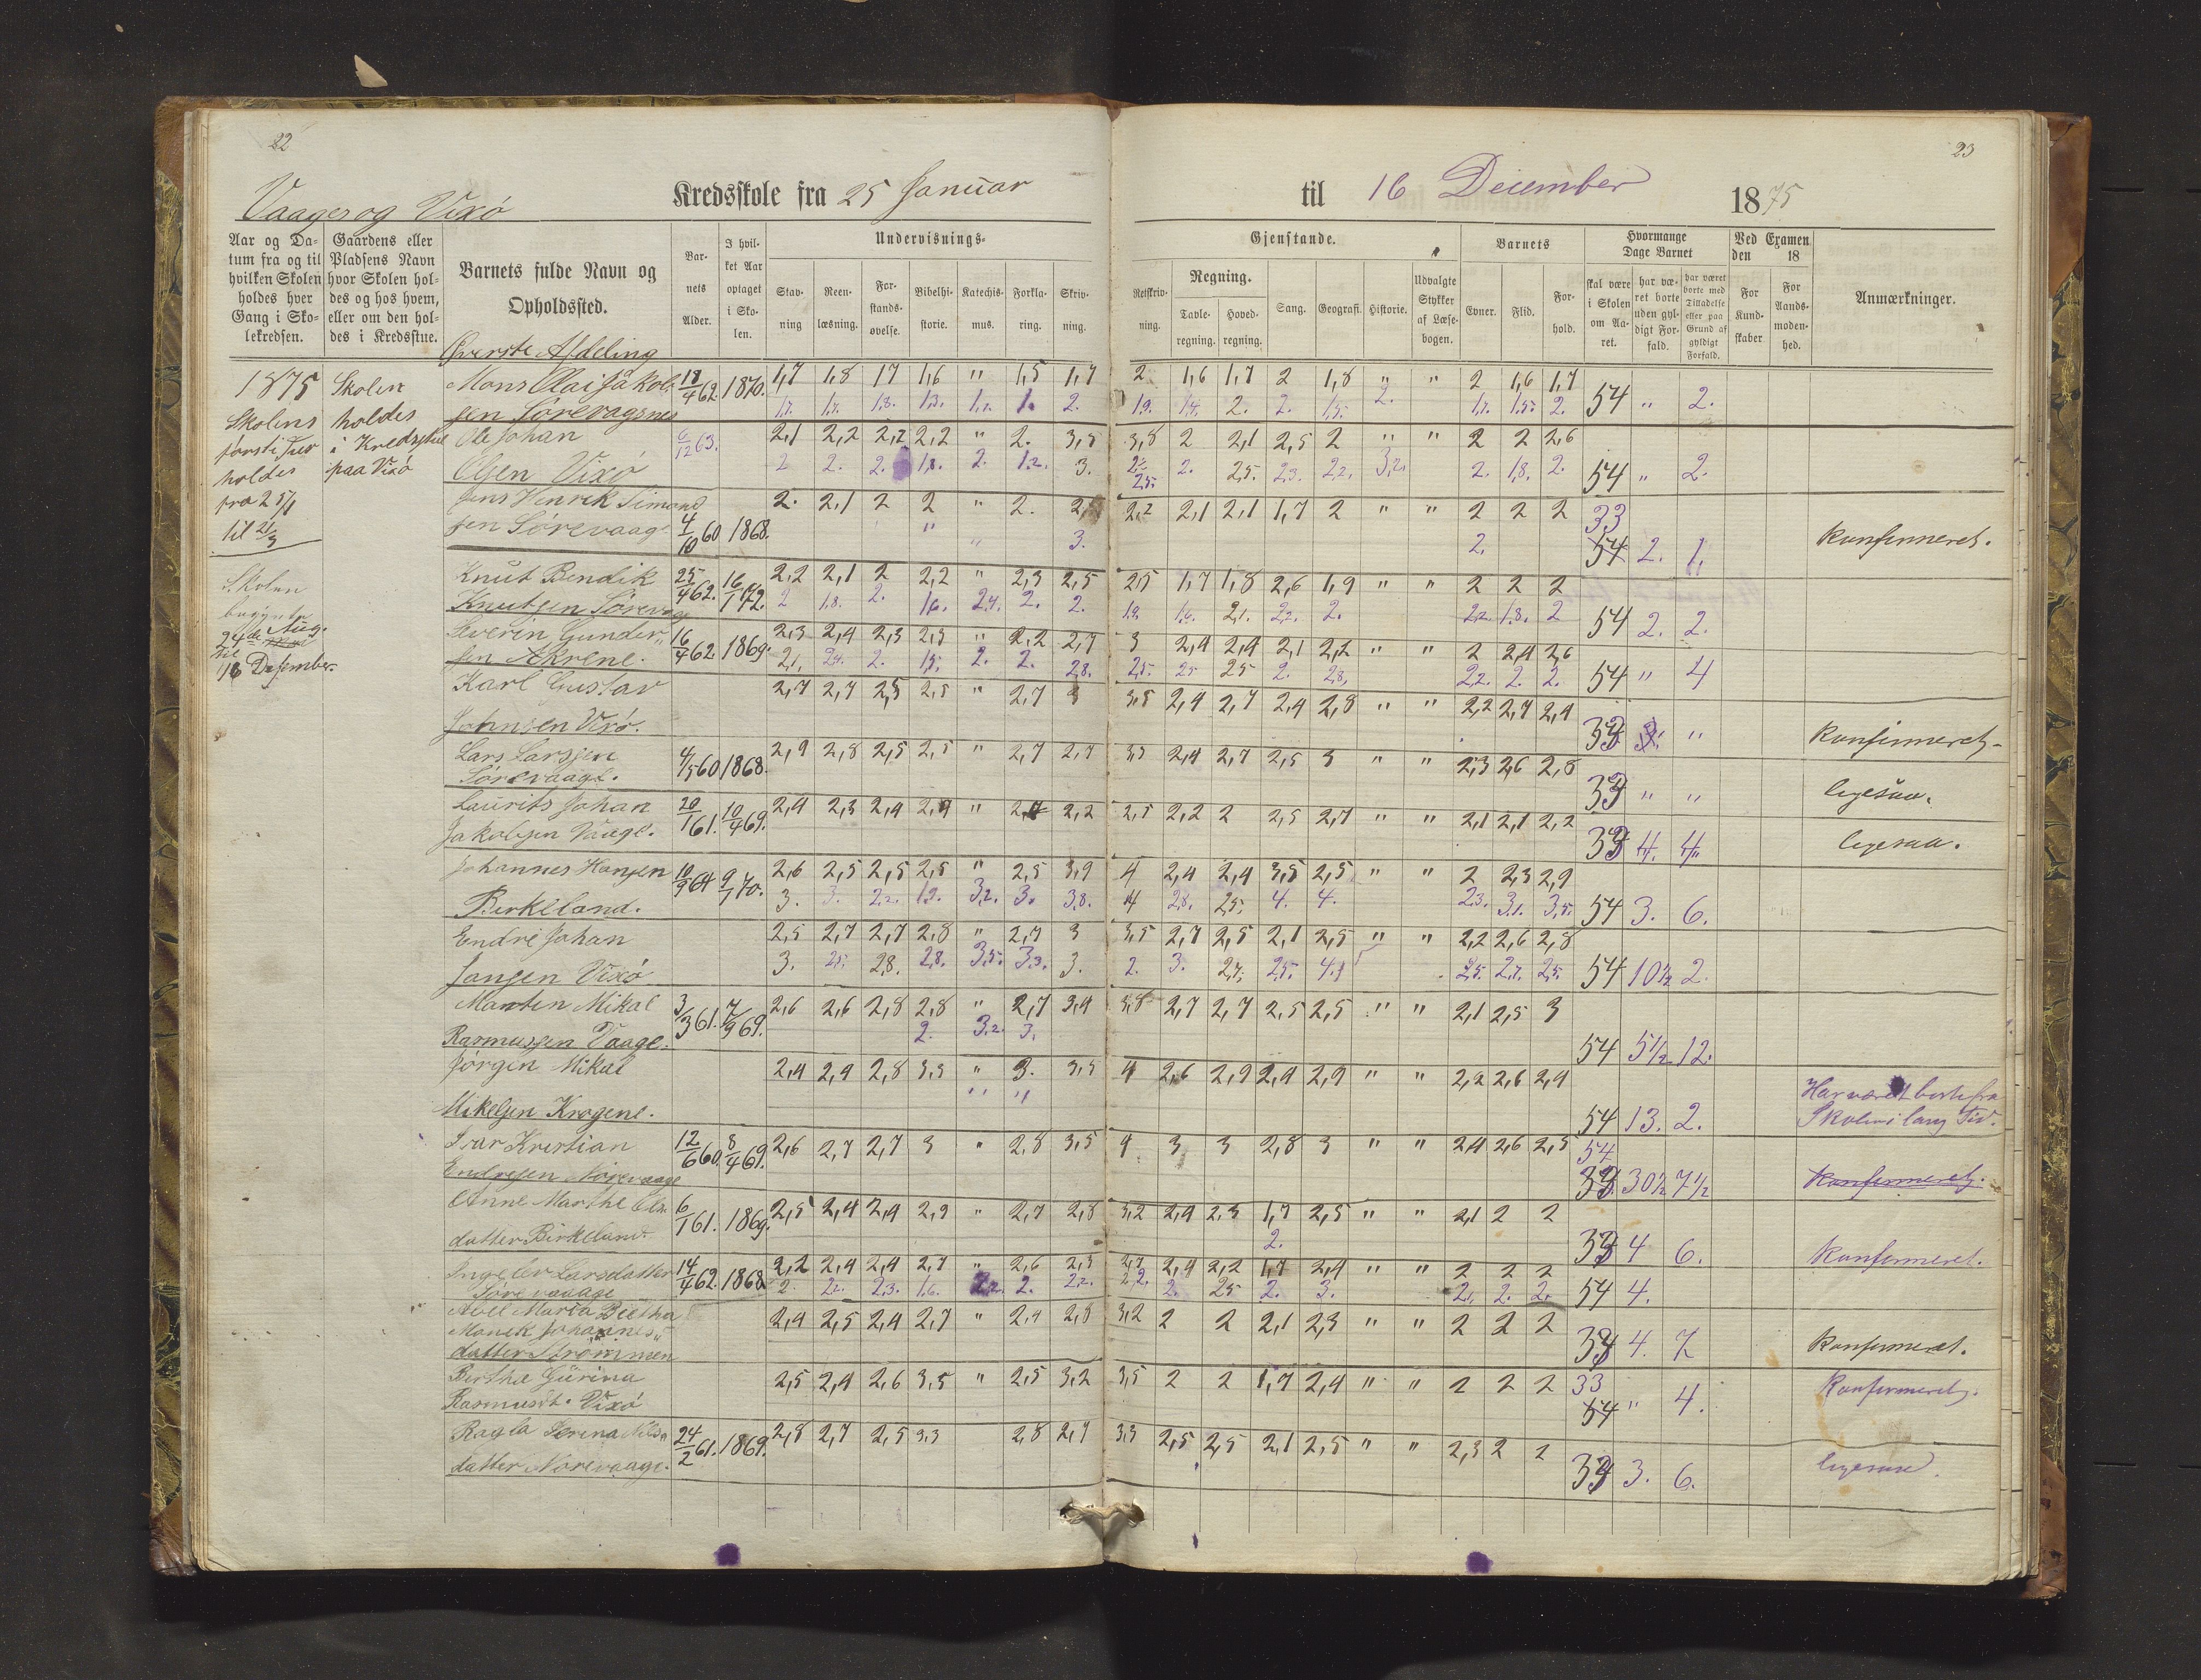 22
23
Vaages og Vixö Kredsskole fra 25 Januar til 16 December 1875
Aar og Datum fra og til hvilken Skolen holdes hver Gang i Skolekredsen.
Gaardens eller Pladsens Navn hvor Skolen holdes og hos hvem, eller om den holdes i Kredsstue.
Barnets fulde Navn og Opholdssted.
Barnets Alder.
I hvilket Aar optaget i Skolen.
Undervisnings-
Stavning
Reenlæsning.
Forstandsøvelse.
Bibelhistorie.
Katechismus.
Forklaring.
Skrivning.
Gjenstande.
Retskrivning.
Regning.
Tavleregning.
Hovedregning.
Sang.
Geografi.
Historie.
Udvalgte Stykker af Læsebogen.
Barnets
Evner.
Flid.
Forhold.
Hvormange Dage Barnet
skal være i Skolen om Aaret.
har været borte uden gyldigt Forfald.
har været borte med Tilladelse eller paa Grund af gyldigt Forfald.
Ved Examen den 18
For Kundskaber
For Aandsmodenhed.
Anmærkninger.
Øverste Afdeling
1875
Skolens
første Tur
holdes
fra 25/1
til 21/3
Skolen
begynte
24de Aug.
til
16 Desember.
Skolen
holdes
i Kredsstue
paa Vixö
Mons Olai Jakob- 18/4 62. 1870. 1,7 1,8 17 1,6 " 1,5 1,7 2 1,6 1,7 2 1,8 " " 2 1,6 1,7
sen Sørevagsnes 1,7. 1,7. 1,8. 1,3. 1. 2. 1.9. 2. 2. 1,5. 2. 1,7. 1,5. 2. 54 " 2.
Ole Johan 6/12 63. 2,1 2,2 2,2 2,2 " 2. 3,5 3,8 2 2,1 2,5 2 " " 2 2 2,6
Olsen Vixö 2 2. 2. 1,8. 2. 1,2. 3. 2,5. 2. 2,5. 2,3. 2,2. 3,2. 2. 1,8. 2. 54 " 2.
Jens Henrik Simond 2. 2,1 2 2 " 2. 2,2 2,1 2,1 1,7 2 " " 2 2 2 33
sen Sørevaag. 4/10 60 1868. " " 3. 2. 54 2. 1. Konfirmeret.
Knut Bendik 25/4 62. 16/1 72. 2,2 2,1 2 2,2 " 2,3 2,5 25 1,7 1,8 2,6 1,9 " " 2 2 2
Knutsen Sørevaag 2 1.8. 2. 1.6. 2.4. 2. 2. 1.9. 1.6. 2.1. 2.2. 2. 2.2. 1.8. 2 54 2. 2.
Severin Gunder- 16/4 62. 1869. 2,3 2,4 2,3 2,3 " 2,2 2,7 3 2,4 2,4 2,1 2,2 " " 2 2,4 2,6
sen Akrene. 2,1. 2,4. 2. 1,5. 2. 2. 2,8. 2,5. 25 25 2. 2,8, 2,2. 2. 2. 54 " 4
Karl Gustav 2,7 2,7 2,5 2,5 " 2,7 3 3,5 2,4 2,7 2,4 2,8 " " 2,2 2,7 2,4
Johnsen Vixö. 33 " Konfirmeret.
Lars Larssen 4/5 60 1868. 2,9 2,8 2,5 2,5 " 2,7 2,7 3,3 2,4 2,7 2,5 3 " " 2,3 2,6 2,8
Sørevaage. 33 " " ligesaa.
Laurits Johan 20/1 61. 10/4 69. 2,4 2,3 2,4 " 2,2 2,5 2,2 2 2,5 2,7 " " 2,1 2,1 2,2
Jakobsen Vaage. 33 4. 4 ligesaa.
Johannes Hansen 10/9 64 9/1 70. 2,6 2,5 2,5 2,5 " 2,5 3,9 4 2,4 2,4 3,5 2,5 " " 2 2,3 2,9
Birkeland. 3. 3. 2,2. 1.9. 3,2. 3. 3,8. 4 2,8. 2,5. 4. 4. 2,3. 3,1. 3,5. 54 3. 6.
Endre Johan 2,5 2,7 2,7 2,8 " 2,7 3 3,5 2,7 2,5 2,1 2,5 " " 2,2 2,6 2,8
Jansen Vixö 3. 2,5. 28. 2,8. 3,5. 3,3. 3. 2. 3. 2,7. 2,5. 4. 2,5. 2,7. 2,5. 54 10½ 2.
Martin Mikal 3/3 61. 7/9 69. 2,6 2,6 2,8 2,8 " 2,7 3,4 3,8 2,7 2,7 2,5 2,5 " " 2,1 2,5 3
Rasmussen Vaage. 2. 3,2. 3. 54 5½ 12.
Jörgen Mikal 2,4 2,9 2,8 3,3 " 3. 3,5 4 2,6 2,9 2,9 2,9 " " 2,2 2,6 2,9
Mikelsen Krogene. " " 54 13. 2. Har været borte fra
Skolen i lang Tid.
Ivar Kristian 12/6 60. 8/4 69. 2,6 2,7 2,7 3 " 2,8 3,5 4 3 3 2,8 3 " " 2,4 2,6 2,5 54
Endresen Nörevaage 33 30½ 7½ Konfirmeret.
Anne Marthe Ols 6/1 61. 1869. 2,5 2,4 2,4 2,9 " 2,7 2,8 3,2 2,4 2,3 1,7 2,5 " " 2,1 2 2
datter Birkeland. 2. 33 4 6. Konfirmeret.
Ingeler Larsdatter 14/4 62. 1868 2,2 2,4 2,4 2,7 " 2,6 2,3 2,7 2,4 2,2 1,7 2,4 " " 2 2 2
Sörevaage 2. 2,2. 2,3. 1.6. 2. 2,2. 2,2. 2. 25 2. 3. 2. 2. 2. 54 4.
Abel Marta Bertha 2,4 2,5 2,4 2,7 " 2,4 2,8 3,2 2 2 2,1 2,3 " " 2 2 2
Monek Johannes-
datter Strömmen 33 4. 7 Konfirmeret.
Bertha Gurina 2,5 2,4 2,6 3,5 " 2,5 3,2 3,5 2 2 1,7 2,4 " " 2 2 2 33
Rasmusdt. Vixö 54 " 4. Konfirmeret.
Ragla Serina Nils- 24/2 61. 1869. 2,8 2,7 2,5 3,3 2,8 2,7 3,3 2,5 2,5 2,1 2,5 " " 2,3 2 2
datter Nörevaage. 33 3. 6. ligesaa.